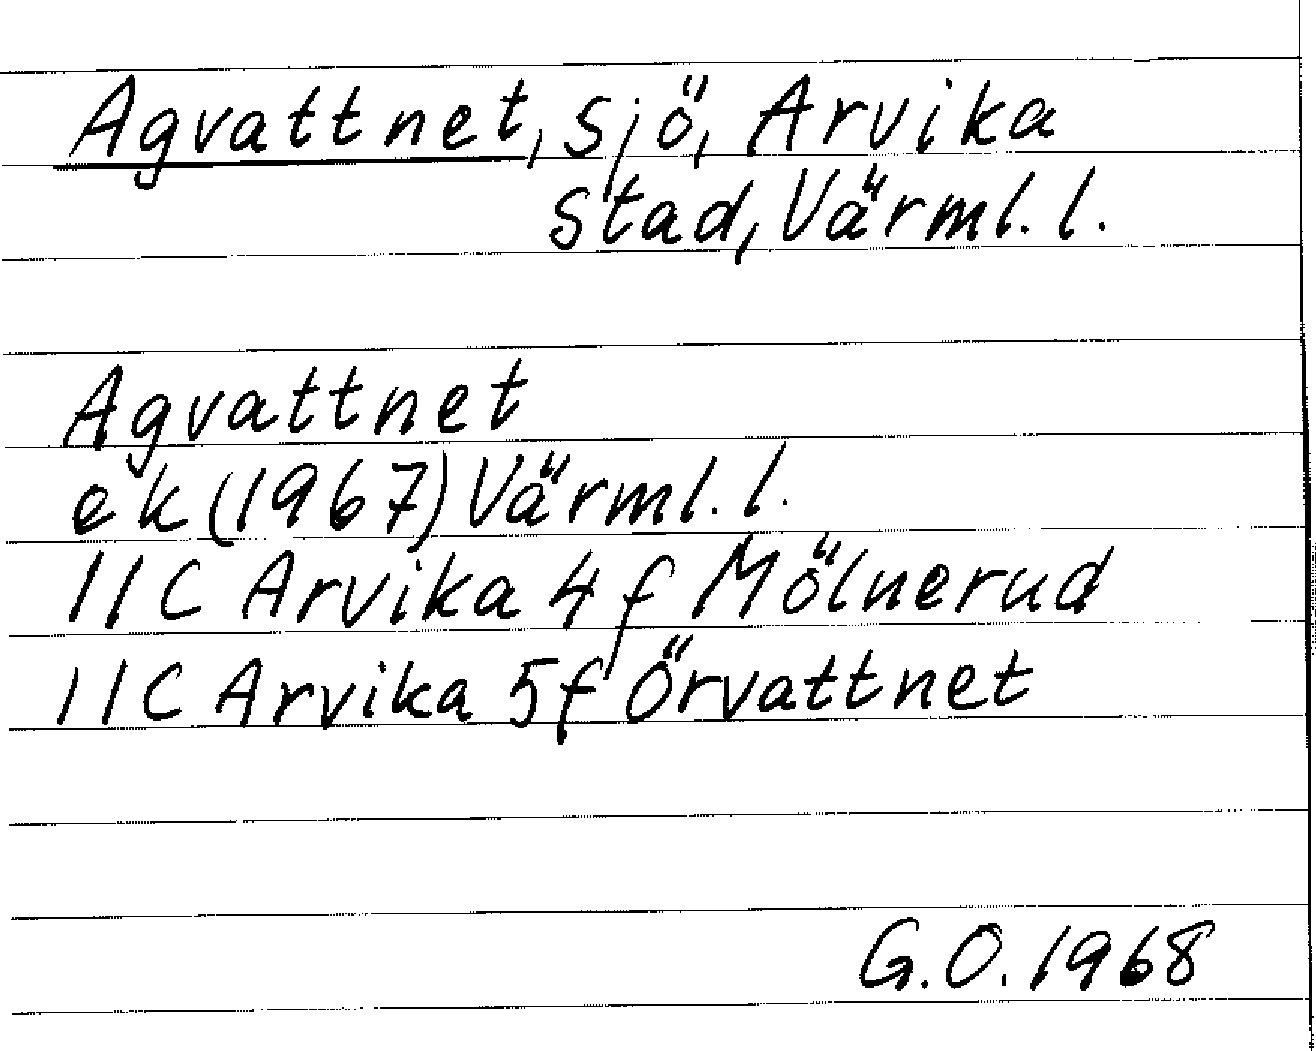 Agvattnet, sjö, Arvika
stad, Värml. l.
Agvattnet
ek (1967) Värml. l.
11C Arvika 4f Mölnerud
11C Arvika 5f Örvattnet
G.O. 1968